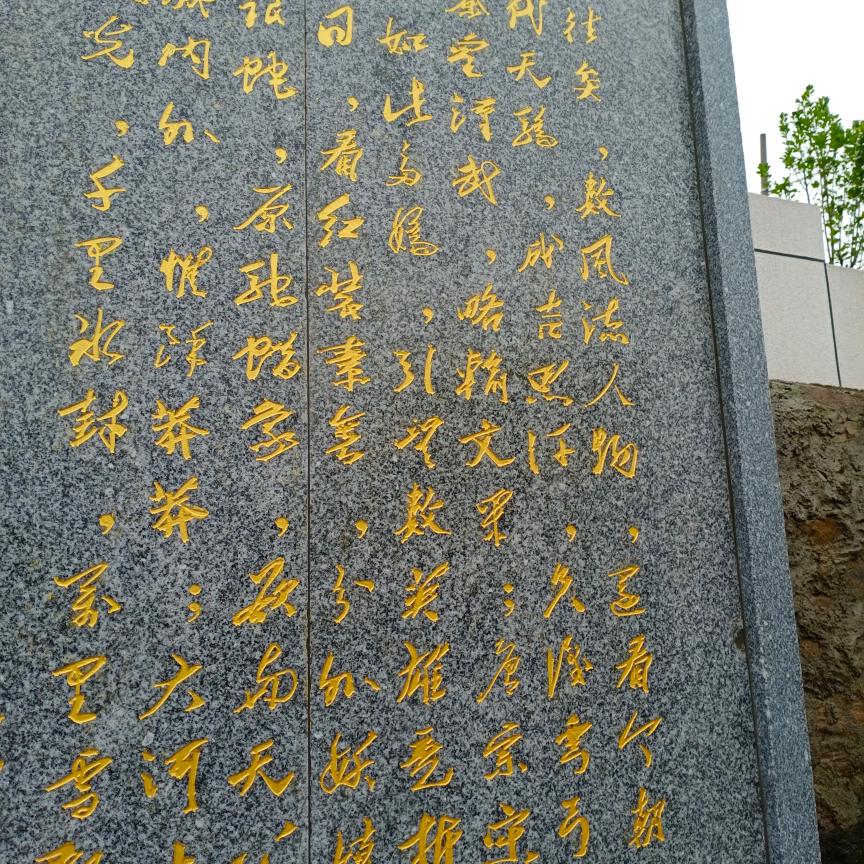 光，千里冰封，万里雪飘
城内外，惟馀莽莽；大河上
银蛇，原驰蜡象，欲与天
日，看红装素裹，分外妖娆
如此多娇，引无数英雄竞折
秦皇汉武，略输文采；唐宗宋
代天骄，成吉思汗，只识弯弓
往矣，数风流人物，还看今朝